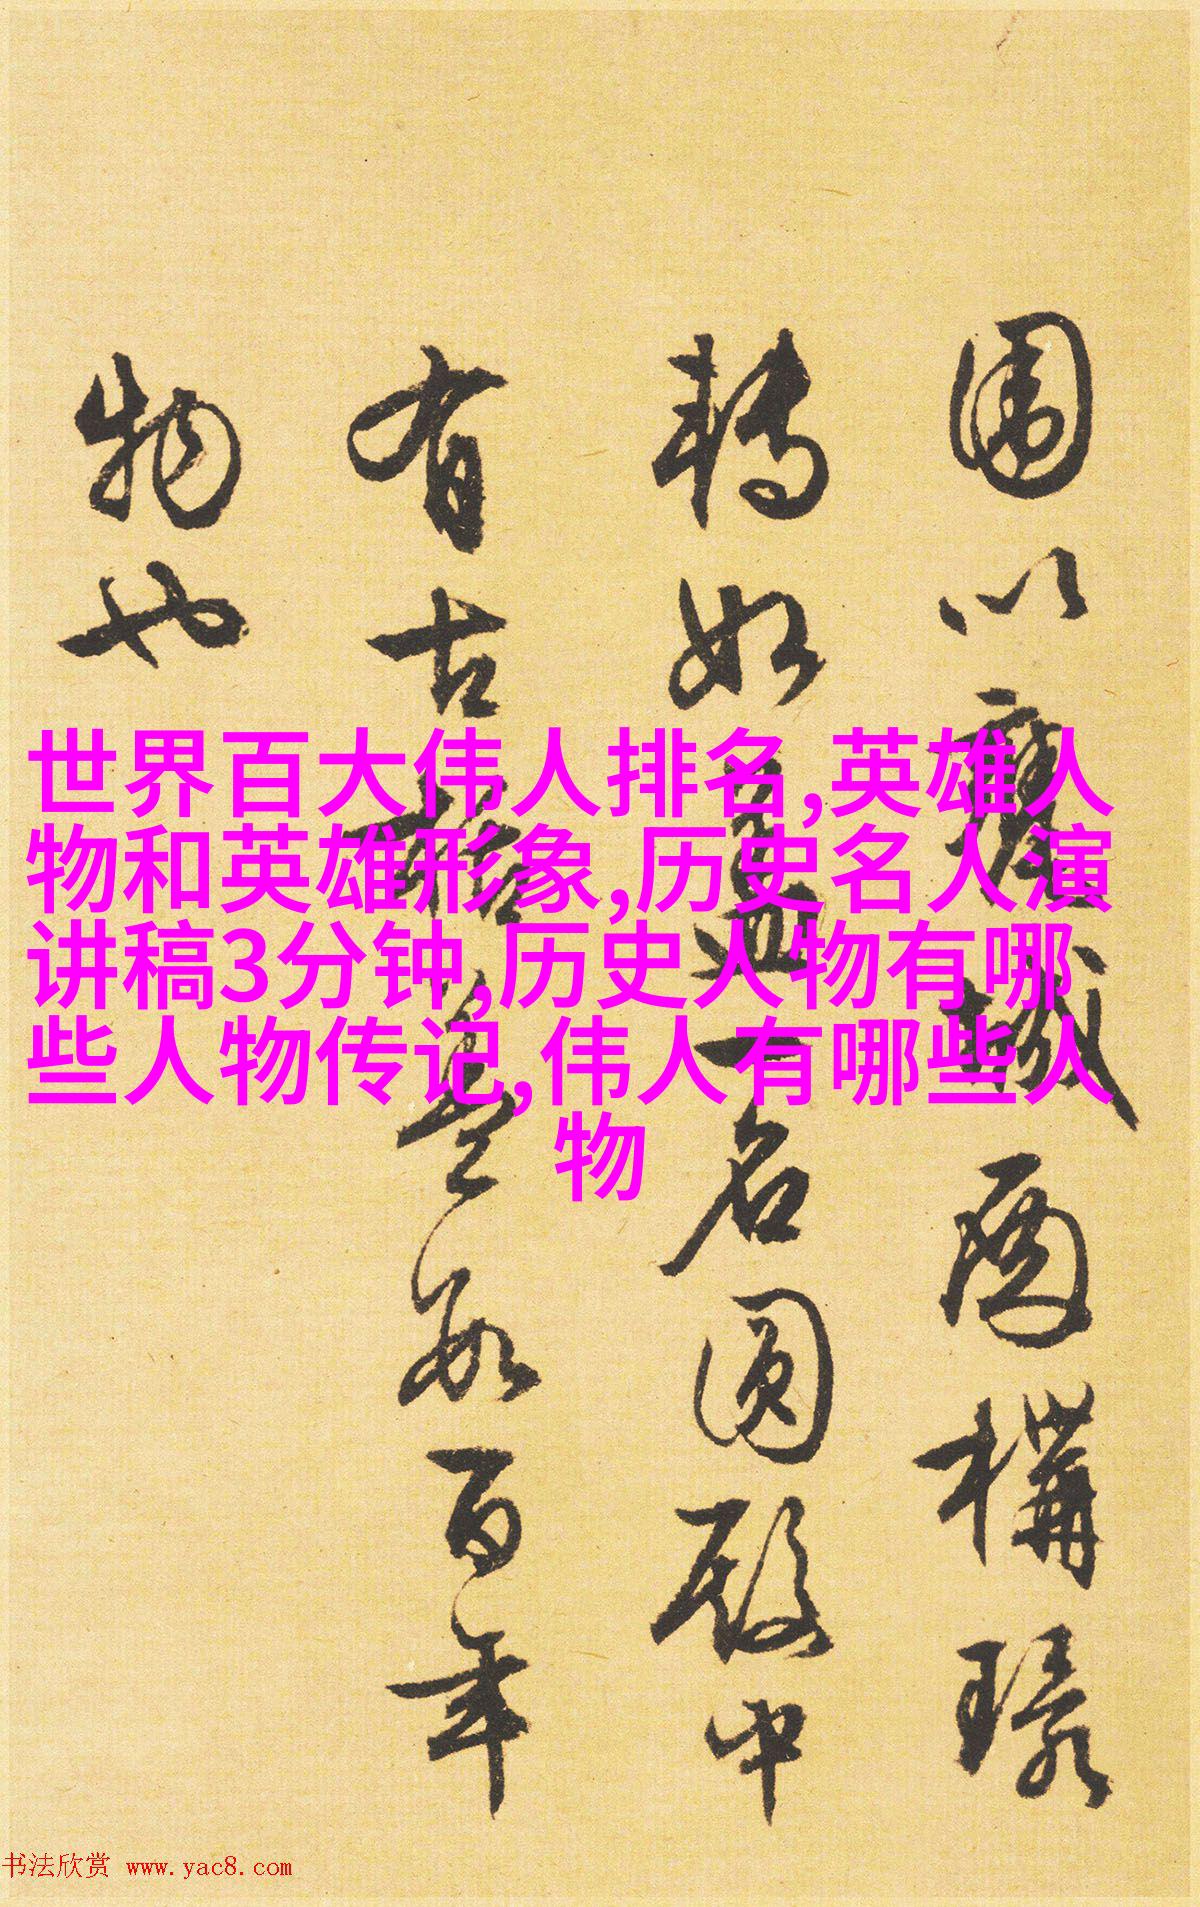 围以廔城西構璚
轉如蓋一名圓殿中
有古栝盖數百年
物也
世界百大伟人排名,英雄人
物和英雄形象,历史名人演
讲稿3分钟,历史人物有哪
些人物传记,伟人有哪些人
物
书法欣赏 www.yac8.com